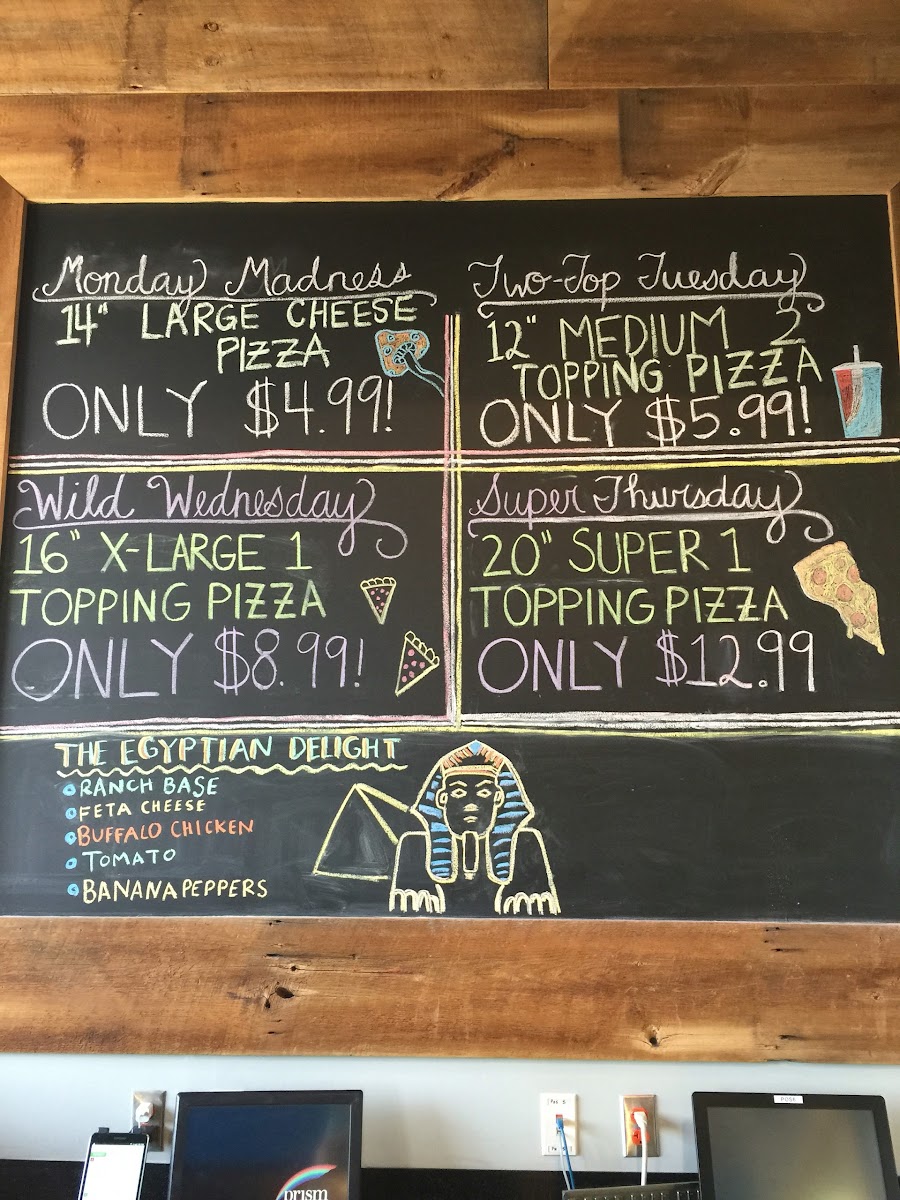 Monday Madness
14" LARGE CHEESE
PIZZA
ONLY $4.99!
Two-Top Tuesday
12" MEDIUM 2
TOPPING PIZZA
ONLY $5.99!
Wild Wednesday
16" X-LARGE 1
TOPPING PIZZA
ONLY $8.99!
Super Thursday
20" SUPER 1
TOPPING PIZZA
ONLY $12.99
THE EGYPTIAN DELIGHT
RANCH BASE
FETA CHEESE
BUFFALO CHICKEN
TOMATO
BANANA PEPPERS
prism